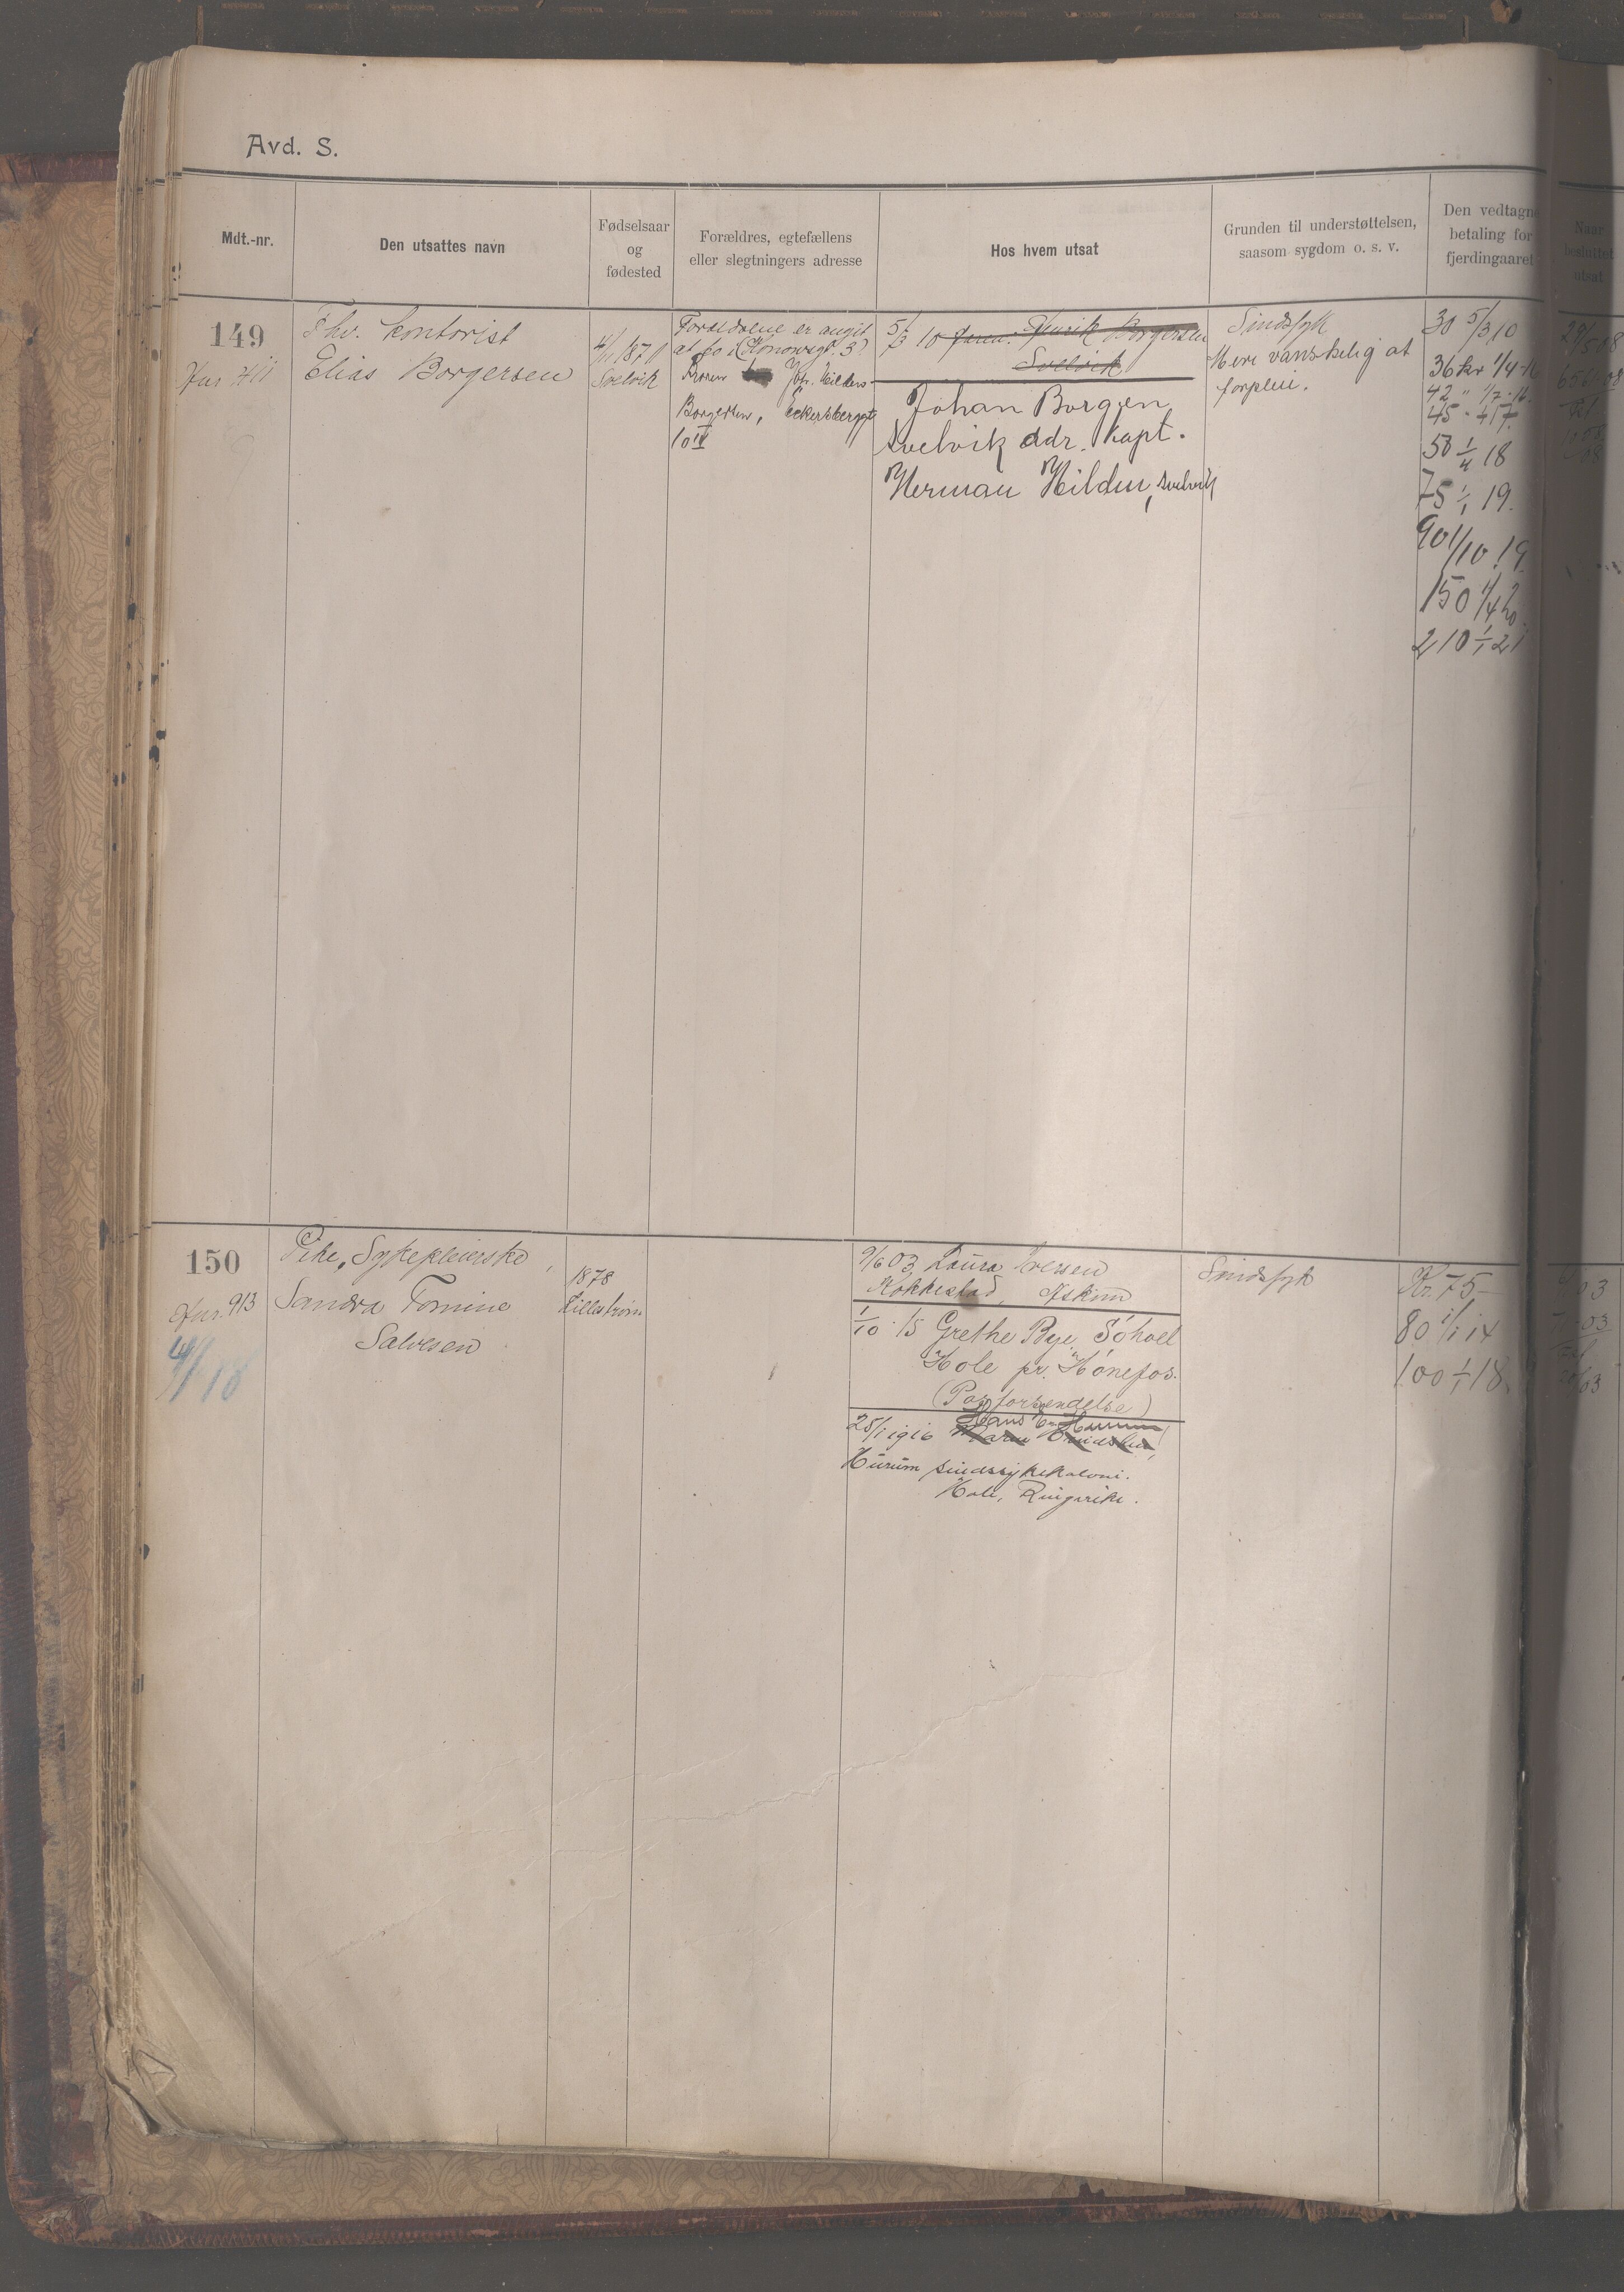 Avd. S.
Mdt.-nr.
Den utsattes navn
Fødselsaar
og
fødested
Forældres, egtefællens
eller slegtningers adresse
Hos hvem utsat
Grunden til understøttelsen,
saasom sygdom o. s. v.
Den vedtagne
betaling for
fjerdingaaret
Naar
besluttet
utsat
149
Fhv. kontorist
Elias Borgersen
Svelvik
Forældrene er angit
at bo i Konowsgt. 3?
Borgersen, Eckersberggt
10 IV
5/3 10 Borgersen
Svelvik
Johan Borgen
Svelvik adr. kapt.
Herman Hilden, Svelvik
Sindssyk
Mere vanskelig at
forpleie.
30 5/3 10
36 kr 1/4-16
42 " 1/7-16
45 - 17
50 1/4 18
75 1/1 19.
90 1/10 19.
150 1/4 20
210 1/1 21
150
Jur. 913
4/18
Pike, Sykepleierske,
Sandra Tomine
Salvesen
1878
Lillestrøm
9/6 03 Laura Iversen
Askim
1/10 15 Grethe Bye, Søhoel
Hole pr. Hønefos.
25/1 1916
Hurum sindssykekoloni.
Hole, Ringerike.
Sindssyk
Kr. 75-
80 1/1 14
100 1/1 18.